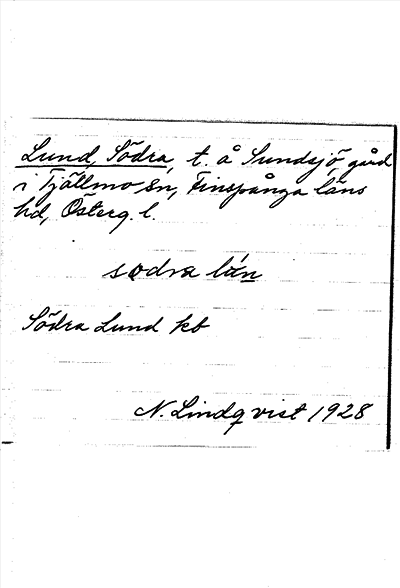 Lund, Södra, t. å Sundsjö gård
i Tjällmo sn, Finspånga läns
hd, Österg. l.
sodra lún
Södra Lund kb
N. Lindqvist 1928